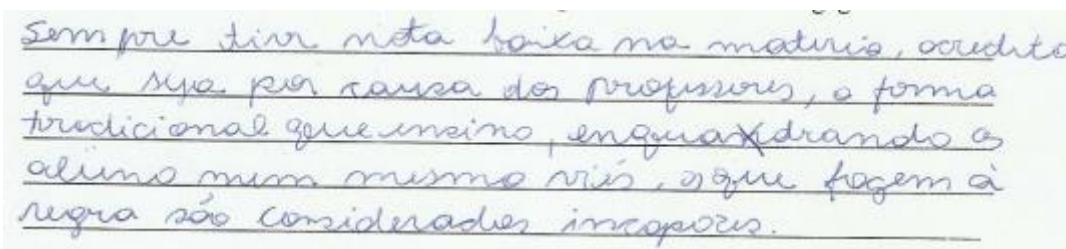 Sempre tive nota baixa na materia, acredito
que seja por causa dos professores, a forma
tradicional que ensina, enquadrando os
aluno num mesmo viés, os que fogem à
regra são considerados incapazes.